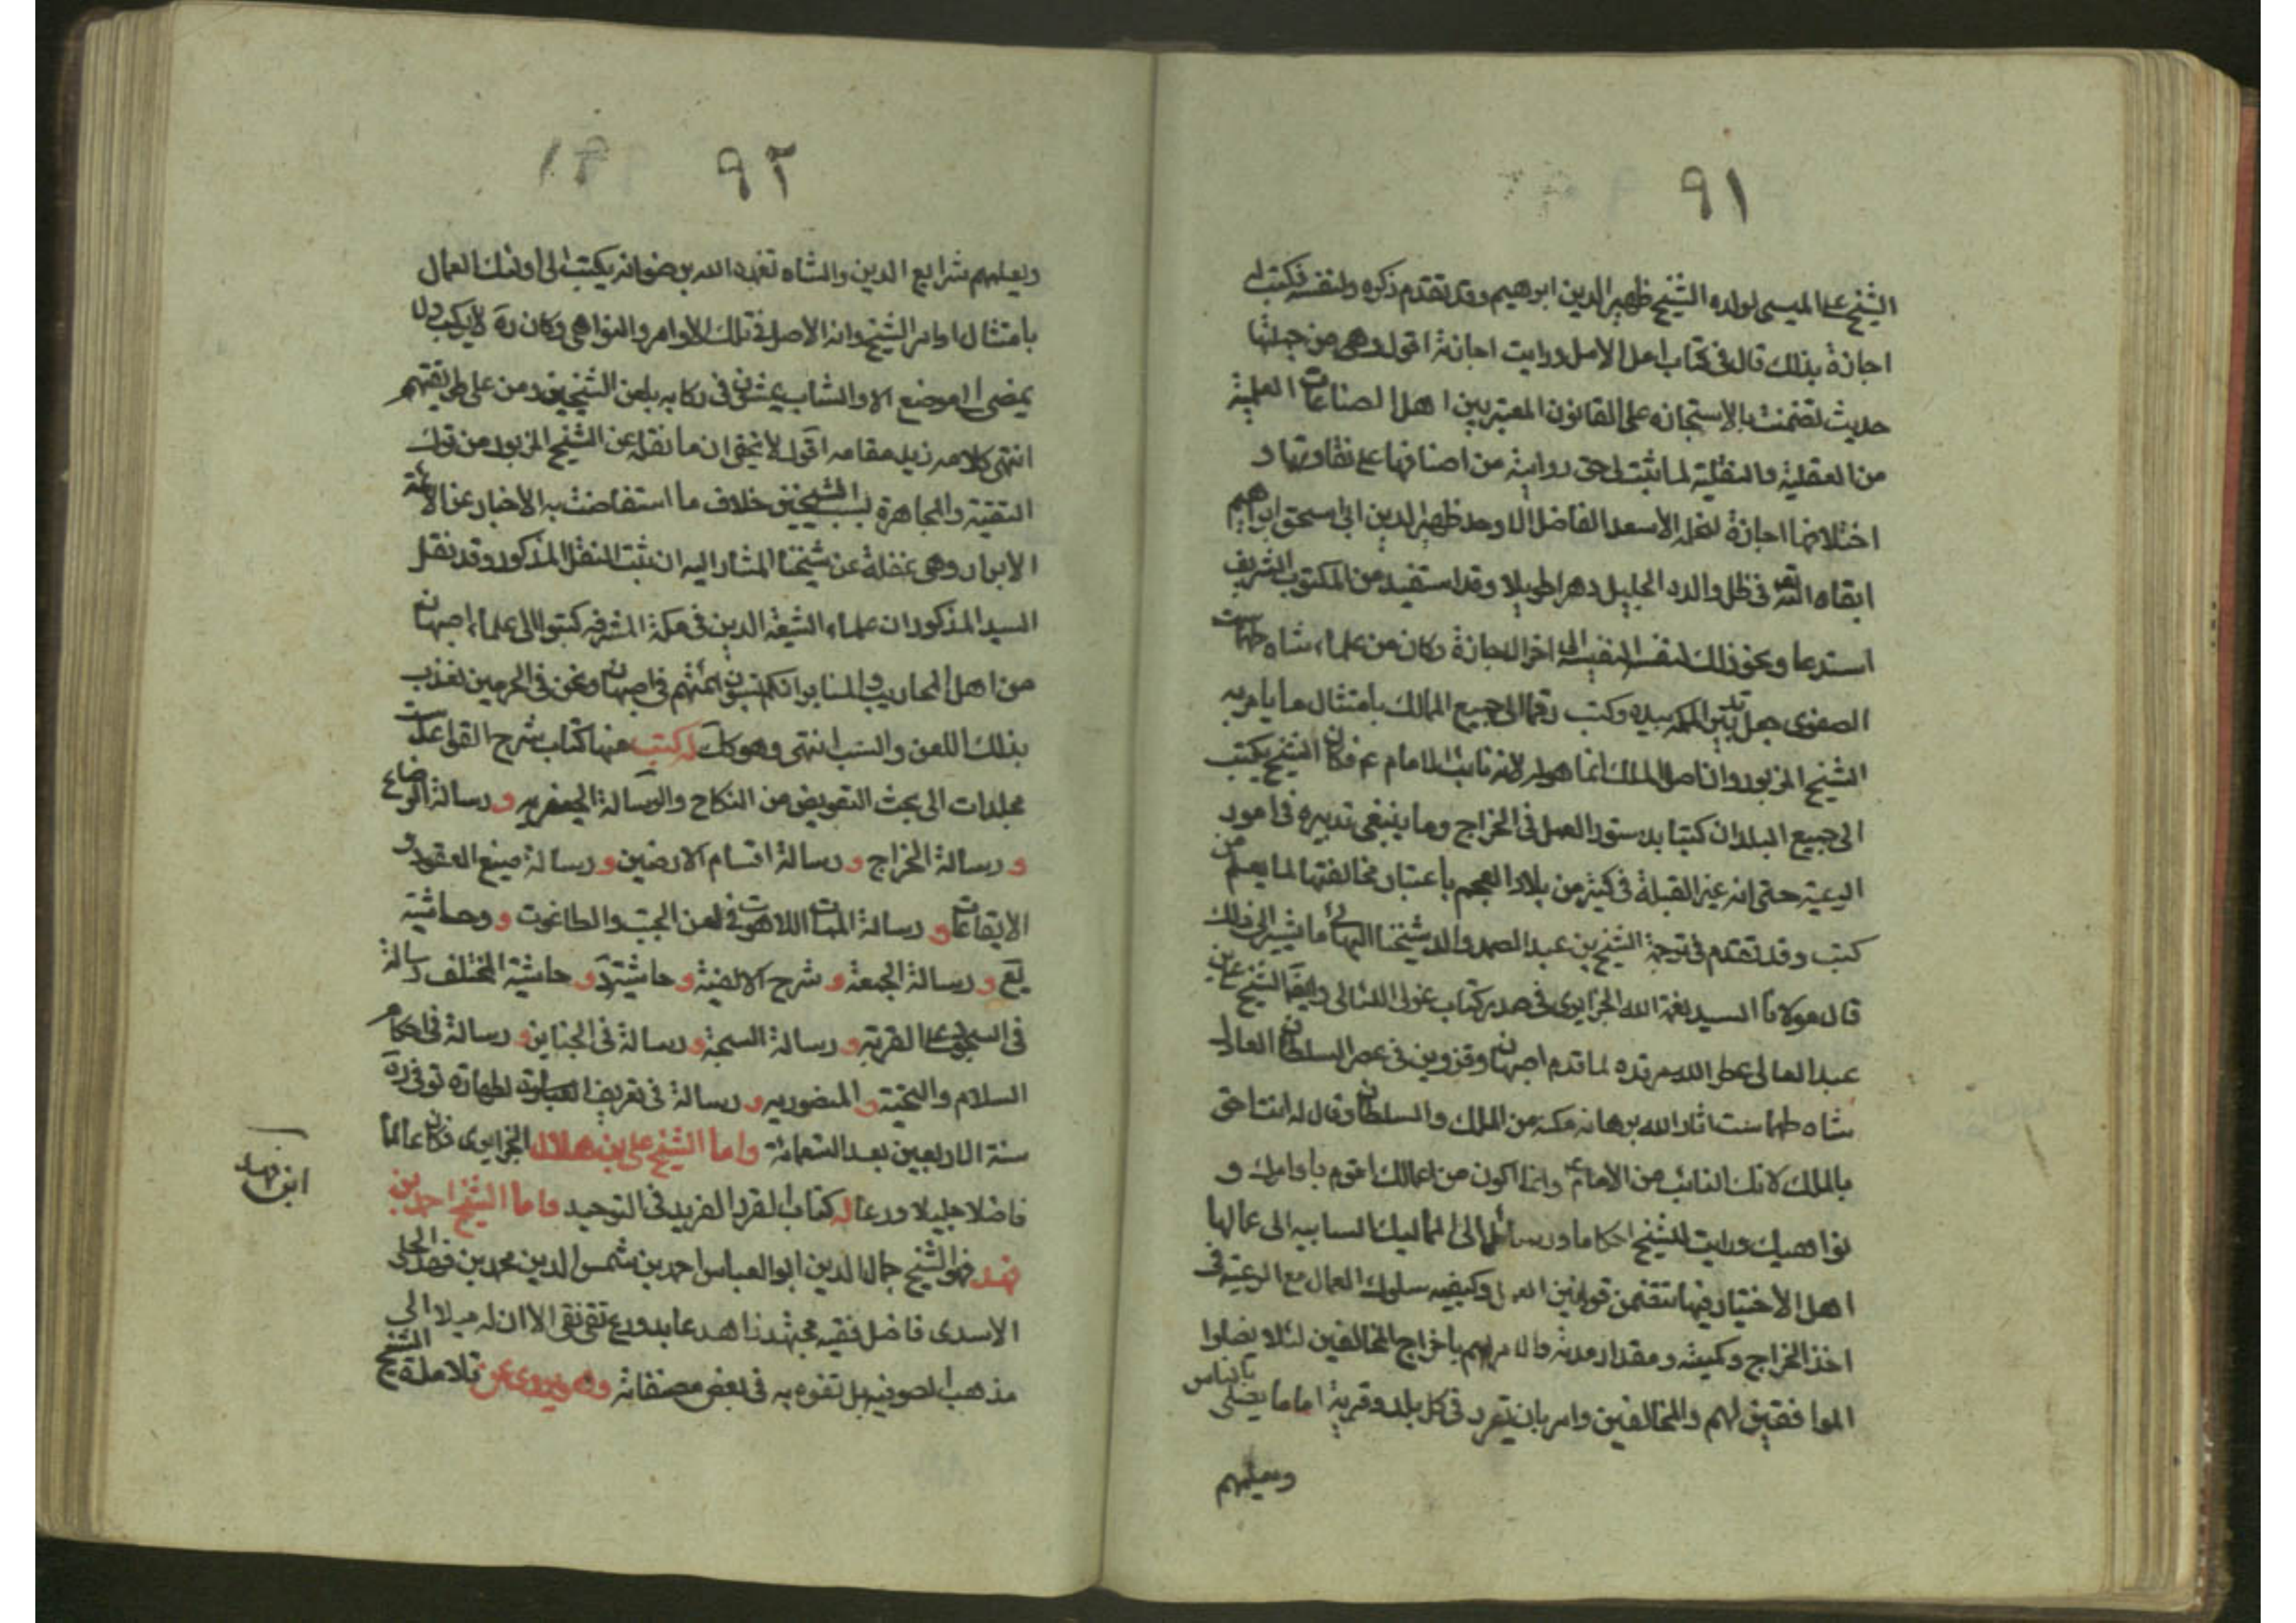 ٩١
الشيخ على الميسى لولده الشيخ ظهير الدين ابرهيم وقد تقدم ذكره ولنفسه فكتب له
اجازة بذلك قال فى كتاب امل الامل ورايت اجازته اقول وهى من جملتها
حديث تضمنت بالاستجازه على القانون المعتبر بين اهل الصناعات العلمية
من العقلية والنقلية لما ثبت له حق روايته من اصنافها على تفاوتها و
اختلافها اجازة لنجله الأسعد الفاضل الاوحد ظهير الدين ابى اسحق ابراهيم
ابقاه الله تعم فى ظل والده الجليل دهرا طويلا وقد استفيد من المكتوب الشريف
استدعا ونحو ذلك لنفسه النفيسة الى اخر الاجازة وكان من علماء شاه طهماست
الصفوى جعل بيده وكتب رقما الى جميع الممالك بامتثال ما يامر به
الشيخ المزبور وان اصل الملك انما هو له لانه نائب الامام ع فكان الشيخ يكتب
الى جميع البلدان كتبا بدستور العمل فى الخراج وما ينبغى تدبيره فى امور
الرعية حتى انه غير القبلة فى كثير من بلاد العجم باعتبار مخالفتها لما يعلم من
كتب وقد تقدم فى ترجمة الشيخ بن عبد الصمد والد شيخنا البهائى ما يشير الى ذلك
قال مولانا السيد نعمة الله الجزايرى فى صدر كتاب غوالى اللئالى وايضا الشيخ على بن
عبد العالى عطر الله مرقده لما قدم اصبهان وقزوين فى عصر السلطان العادل
شاه طهماست انار الله برهانه مكنه من الملك والسلطان وقال له انت احق
بالملك لانك النائب من الامام ع وانما اكون من عمالك اقوم باوامرك و
نواهيك ورايت للشيخ احكاما ورسائل الى المماليك السابيه الى عمالها
اهل الأختيار فيها تتضمن قوانين العدل وكيفيه سلوك العمال مع الرعية فى
اخذ الخراج وكميته ومقدار مدته والامر لهم باخراج المخالفين لئلا يضلوا
الموافقين لهم والمخالفين وامر بان يقرر فى كل بلد وقرية اماما يصلى بالناس
ويعلمهم
٩٢
ويعلمهم شرايع الدين والشاه تغمده الله برضوانه يكتب الى اولئك العمال
بامتثال اوامر الشيخ وانه الأصل فى تلك الأوامر والنواهى وكان ره لا يركب ولا
يمضى الى موضع الا والشاب يمشى فى ركابه بلعن الشيخين ومن على طريقتهم
انتهى كلامه زيد مقامه اقول لا يخفى ان ما نقله عن الشيخ المزبور من ترك
التقية والمجاهرة بسب الشيخين خلاف ما استفاضت به الأخبار عن الائمة
الأبرار وهى غفلة عن شيخنا المشار اليه ان ثبت النقل المذكور وقد نقل
السيد المذكور ان علماء الشيعة الدين فى مكة المشرفه كتبوا الى علماء اصبهان
من اهل المحاريب والمنابر انكم تسبون ائمتهم فى اصبهان ونحن فى الحرمين نعذب
بذلك اللعن والسب انتهى وهو كك له كتب منها كتاب شرح القواعد ست
مجلدات الى بحث التفويض من النكاح والرسالة الجعفريه و رسالة الرضاع
و رسالة الخراج و رسالة اقسام الارضين و رسالة صيغ العقود و
الايقاعات و رسالة اللاهوت فى لعن الجبت والطاغوت و وحاشية
يع و رسالة الجمعة و شرح الالفية و حاشية د و حاشية المختلف رسالة
فى السجود على القربة و رسالة السبحة و رسالة فى الجناين و رسالة فى احكام
السلام والتحية و المنصوريه و رسالة فى تعريف الطهارة توفى ره
سنة الاربعين بعد التسعمائة واما الشيخ على بن هلال الجزايرى فكان عالما
فاضلا جليلا ورعا له كتاب الفرد الفريد فى التوحيد واما الشيخ احمد بن
فهد فهو الشيخ جمال الدين ابو العباس احمد بن شمس الدين محمد بن فهد الحلى
الاسدى فاضل فقيه مجتهد زاهد عابد ورع تقى نقى الا ان له ميلا الى
مذهب الصوفيه بل تفوه به فى بعض مصنفاته وهو يروى عن تلامذة الشيخ
ابن فهد